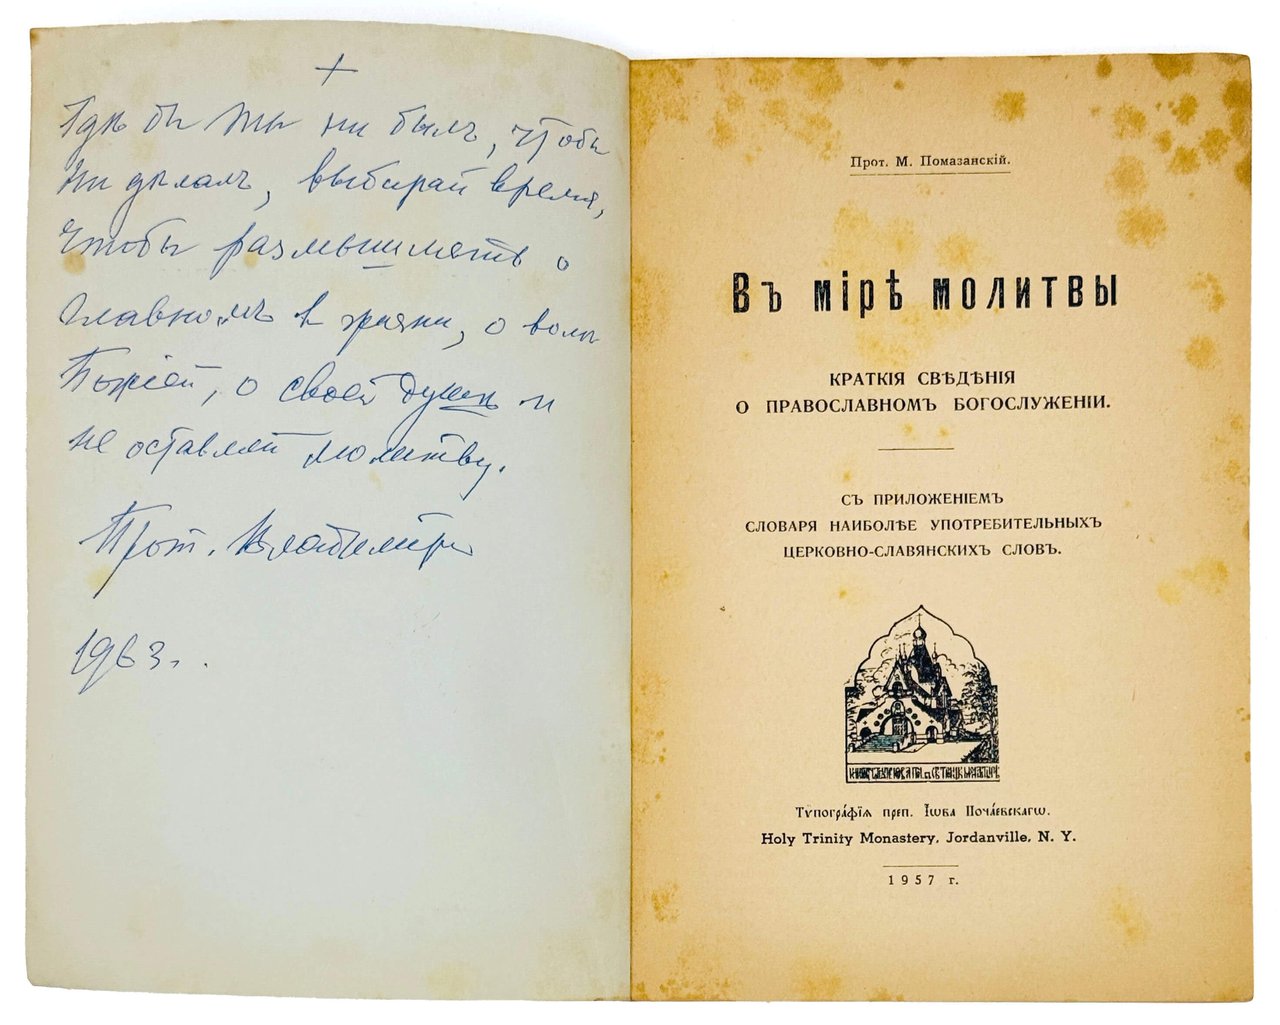 +
Гдѣ бы ты ни былъ, чтобы
ни дѣлалъ, выбирай время,
чтобы размышлять о
главномъ в жизни, о волѣ
Божіей, о своей душѣ и
не оставляй молитву.
Прот. Владимиръ
1963 г.
Прот. М. Помазанскій.
Въ мірѣ молитвы
КРАТКІЯ СВѢДѢНІЯ
О ПРАВОСЛАВНОМЪ БОГОСЛУЖЕНІИ.
СЪ ПРИЛОЖЕНІЕМЪ
СЛОВАРЯ НАИБОЛѢЕ УПОТРЕБИТЕЛЬНЫХЪ
ЦЕРКОВНО-СЛАВЯНСКИХЪ СЛОВЪ.
Тѵпогра́фїѧ преп. Іѡва Поча́евскагѡ.
Holy Trinity Monastery, Jordanville, N. Y.
1957 г.